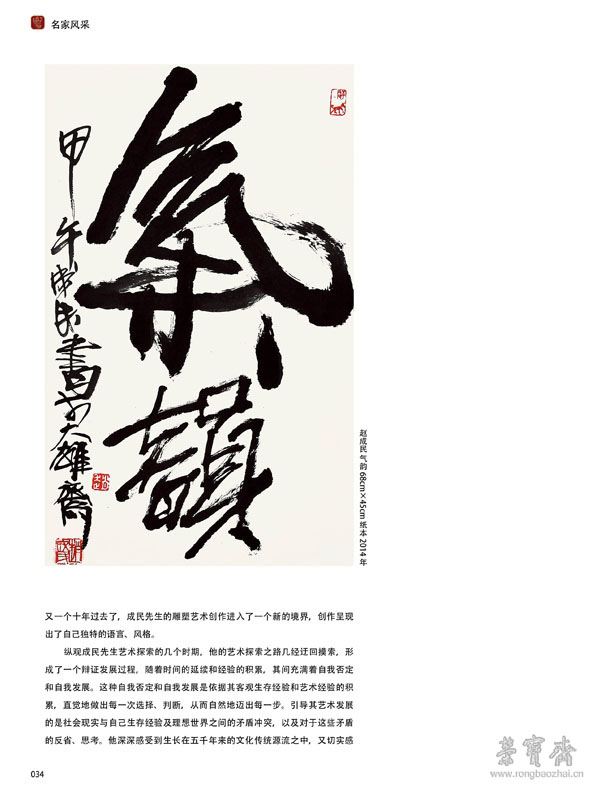 名家风采
氣韻
甲午成民書於大雄齋
赵成民 气韵 68cm×45cm 纸本 2014年
又一个十年过去了，成民先生的雕塑艺术创作进入了一个新的境界，创作呈现
出了自己独特的语言、风格。
纵观成民先生艺术探索的几个时期，他的艺术探索之路几经迂回摸索，形
成了一个辩证发展过程，随着时间的延续和经验的积累，其间充满着自我否定
和自我发展。这种自我否定和自我发展是依据其客观生存经验和艺术经验的积
累，直觉地做出每一次选择、判断，从而自然地迈出每一步。引导其艺术发展
的是社会现实与自己生存经验及理想世界之间的矛盾冲突，以及对于这些矛盾
的反省、思考。他深深感受到生长在五千年来的文化传统源流之中，又切实感
034
榮寶齋
www.rongbaozhai.cn